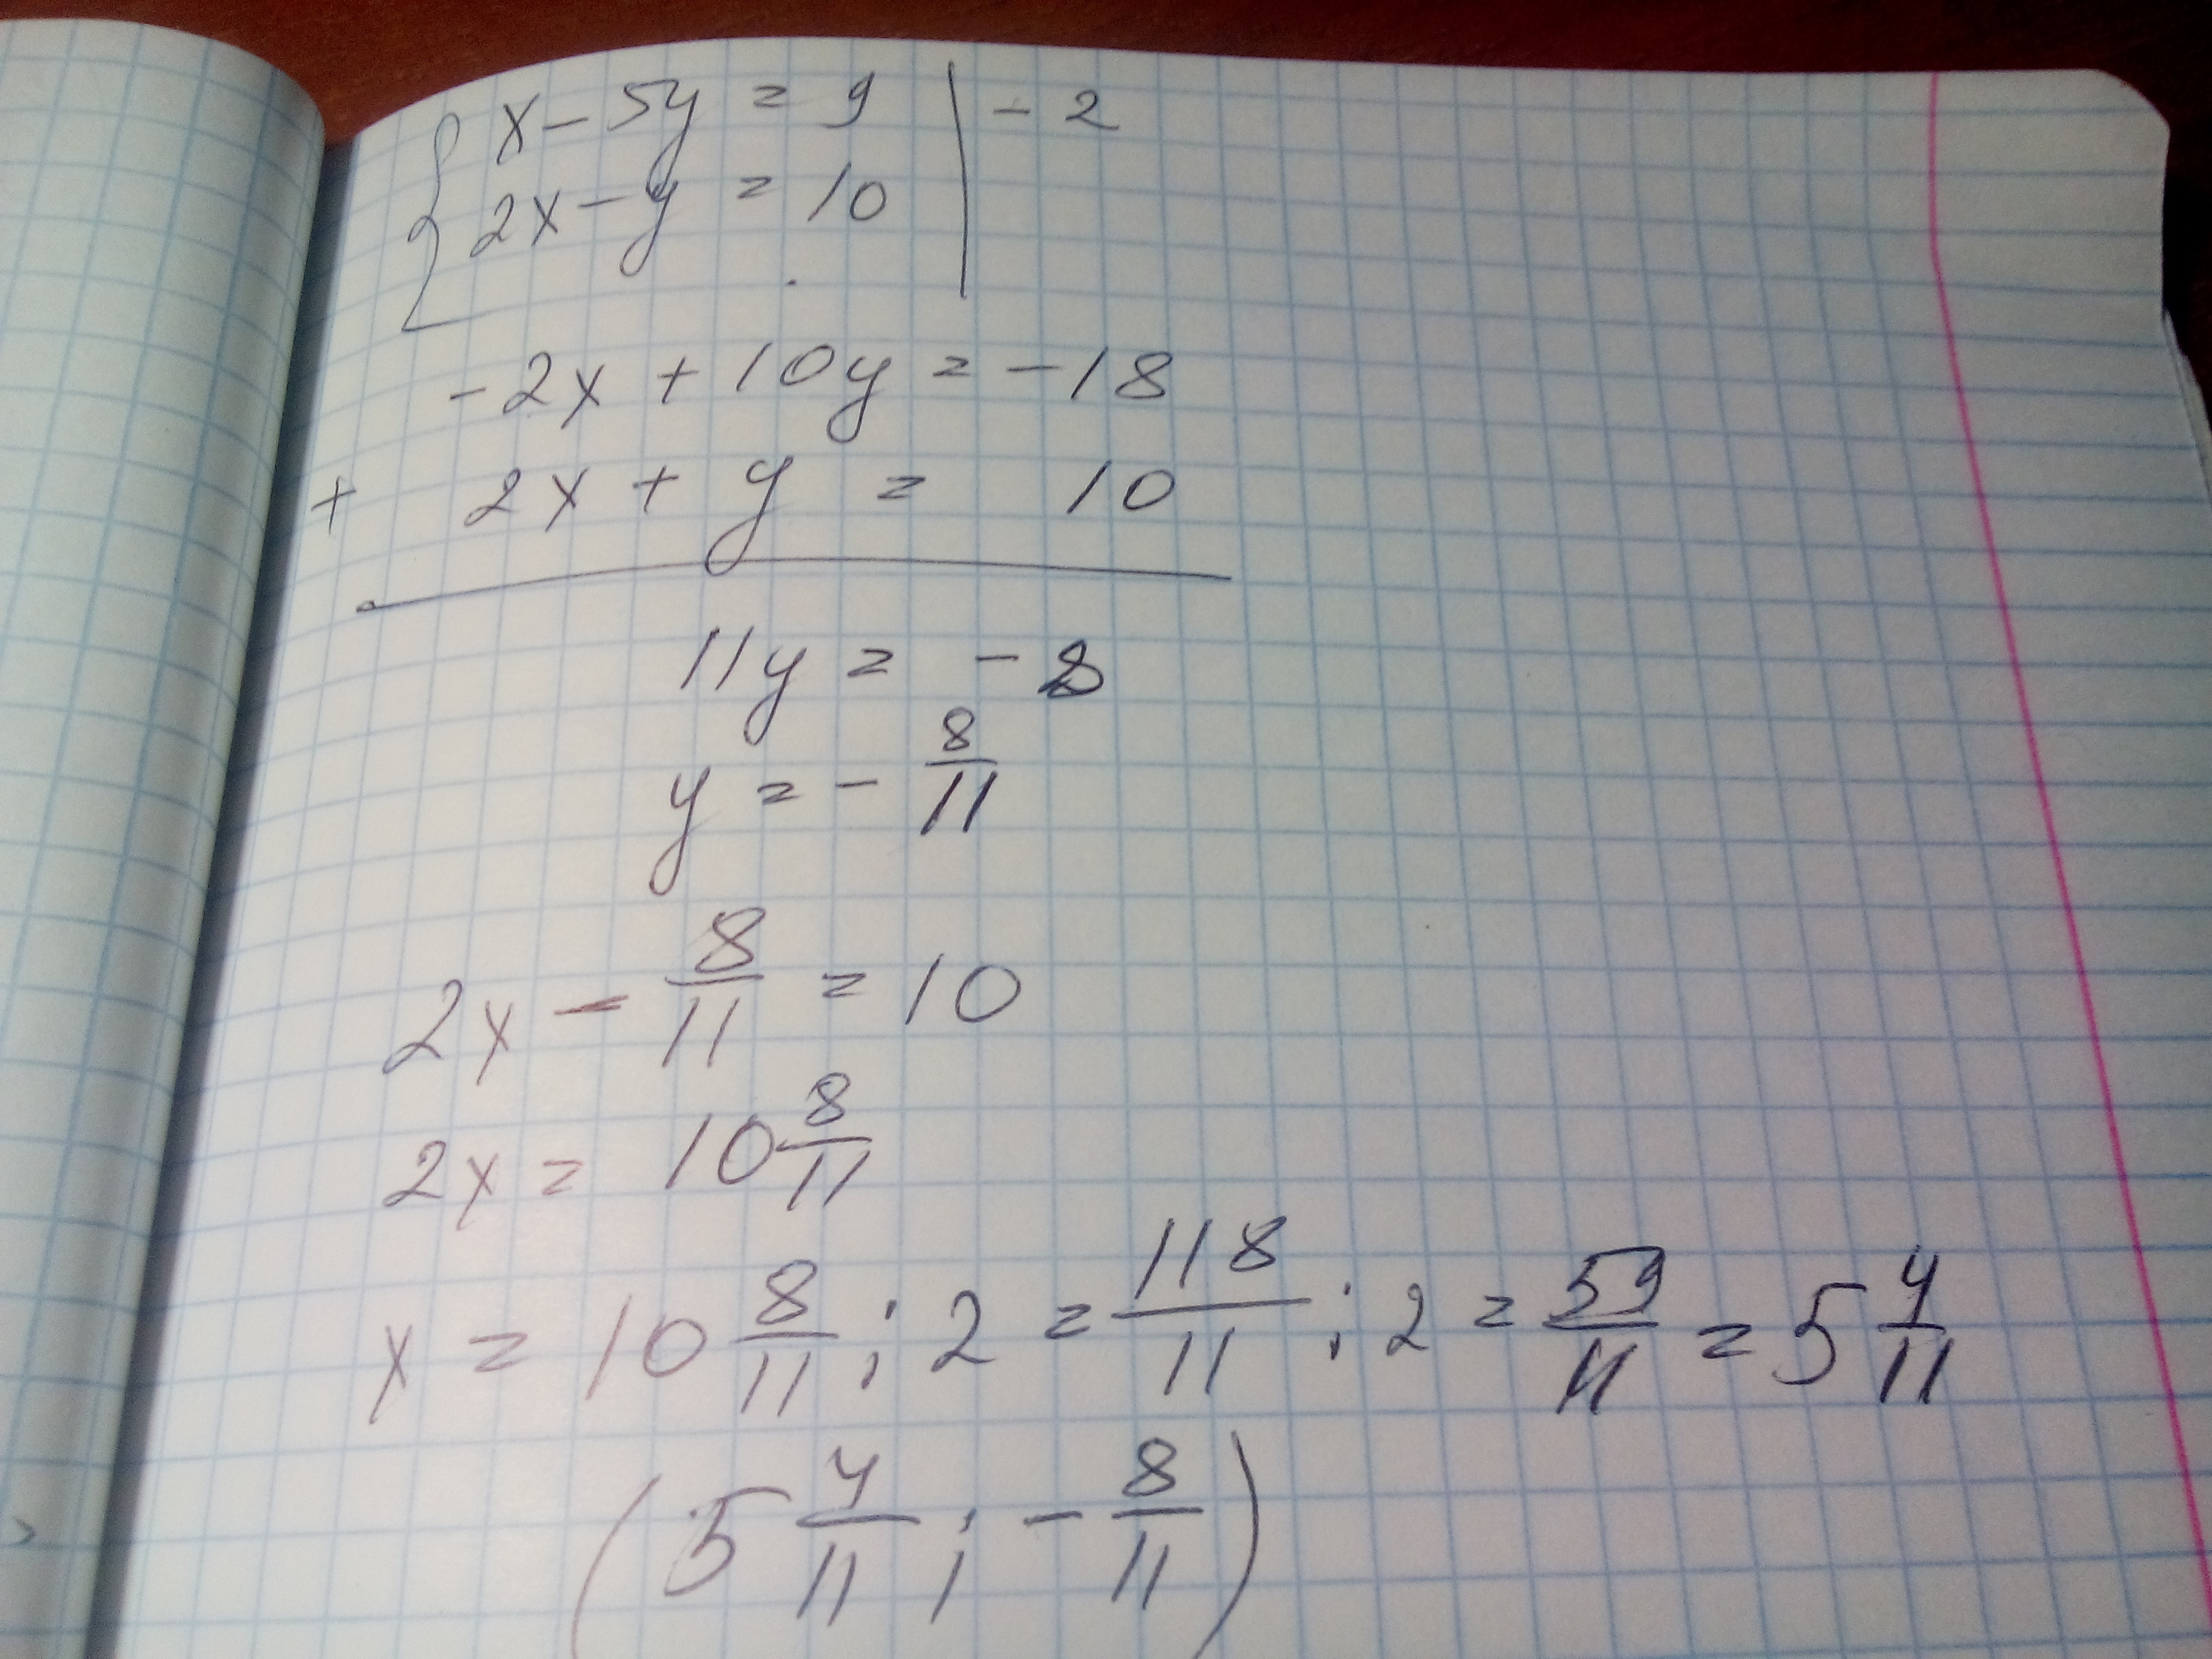 x - 5y = 9 | - 2
2x - y = 10
-2x + 10y = -18
+ 2x + y = 10
11y = - 8
y = - 8/11
2x - 8/11 = 10
2x = 10 8/11
x = 10 8/11 : 2 = 118/11 : 2 = 59/11 = 5 4/11
(5 4/11 ; - 8/11)